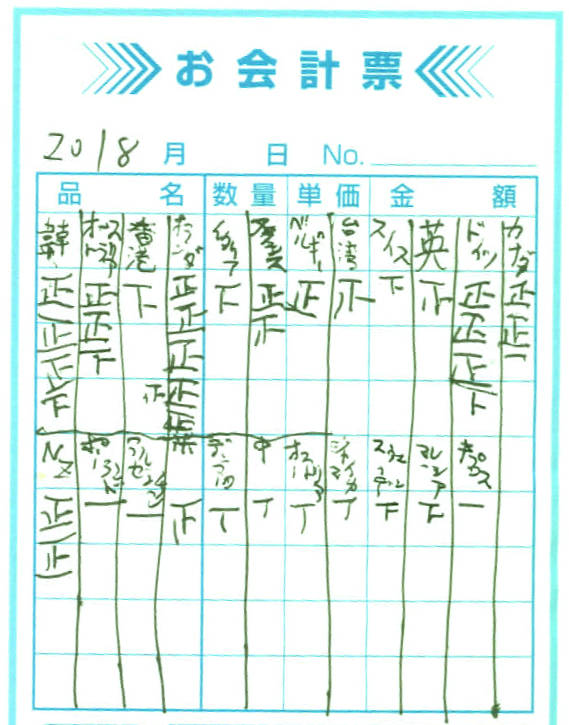 お会計票
2018 月 日 No.
品名 数量 単価 金額
カナダ 正 正 一
ドイツ 正 正 正 下
英 正
スイス 下
台湾 正
ベルギー 正
フランス 正 正
イタリア 下
オランダ 正 正 正 正
香港 下
オーストラリア 正 正 下
韓 正 正 正 下
キプロス 一
マレーシア 下
スウェーデン 下
ジャマイカ 丁
オーストリア 丁
中 丁
米 正
アルゼンチン 一
ポーランド 一
NZ 正 正